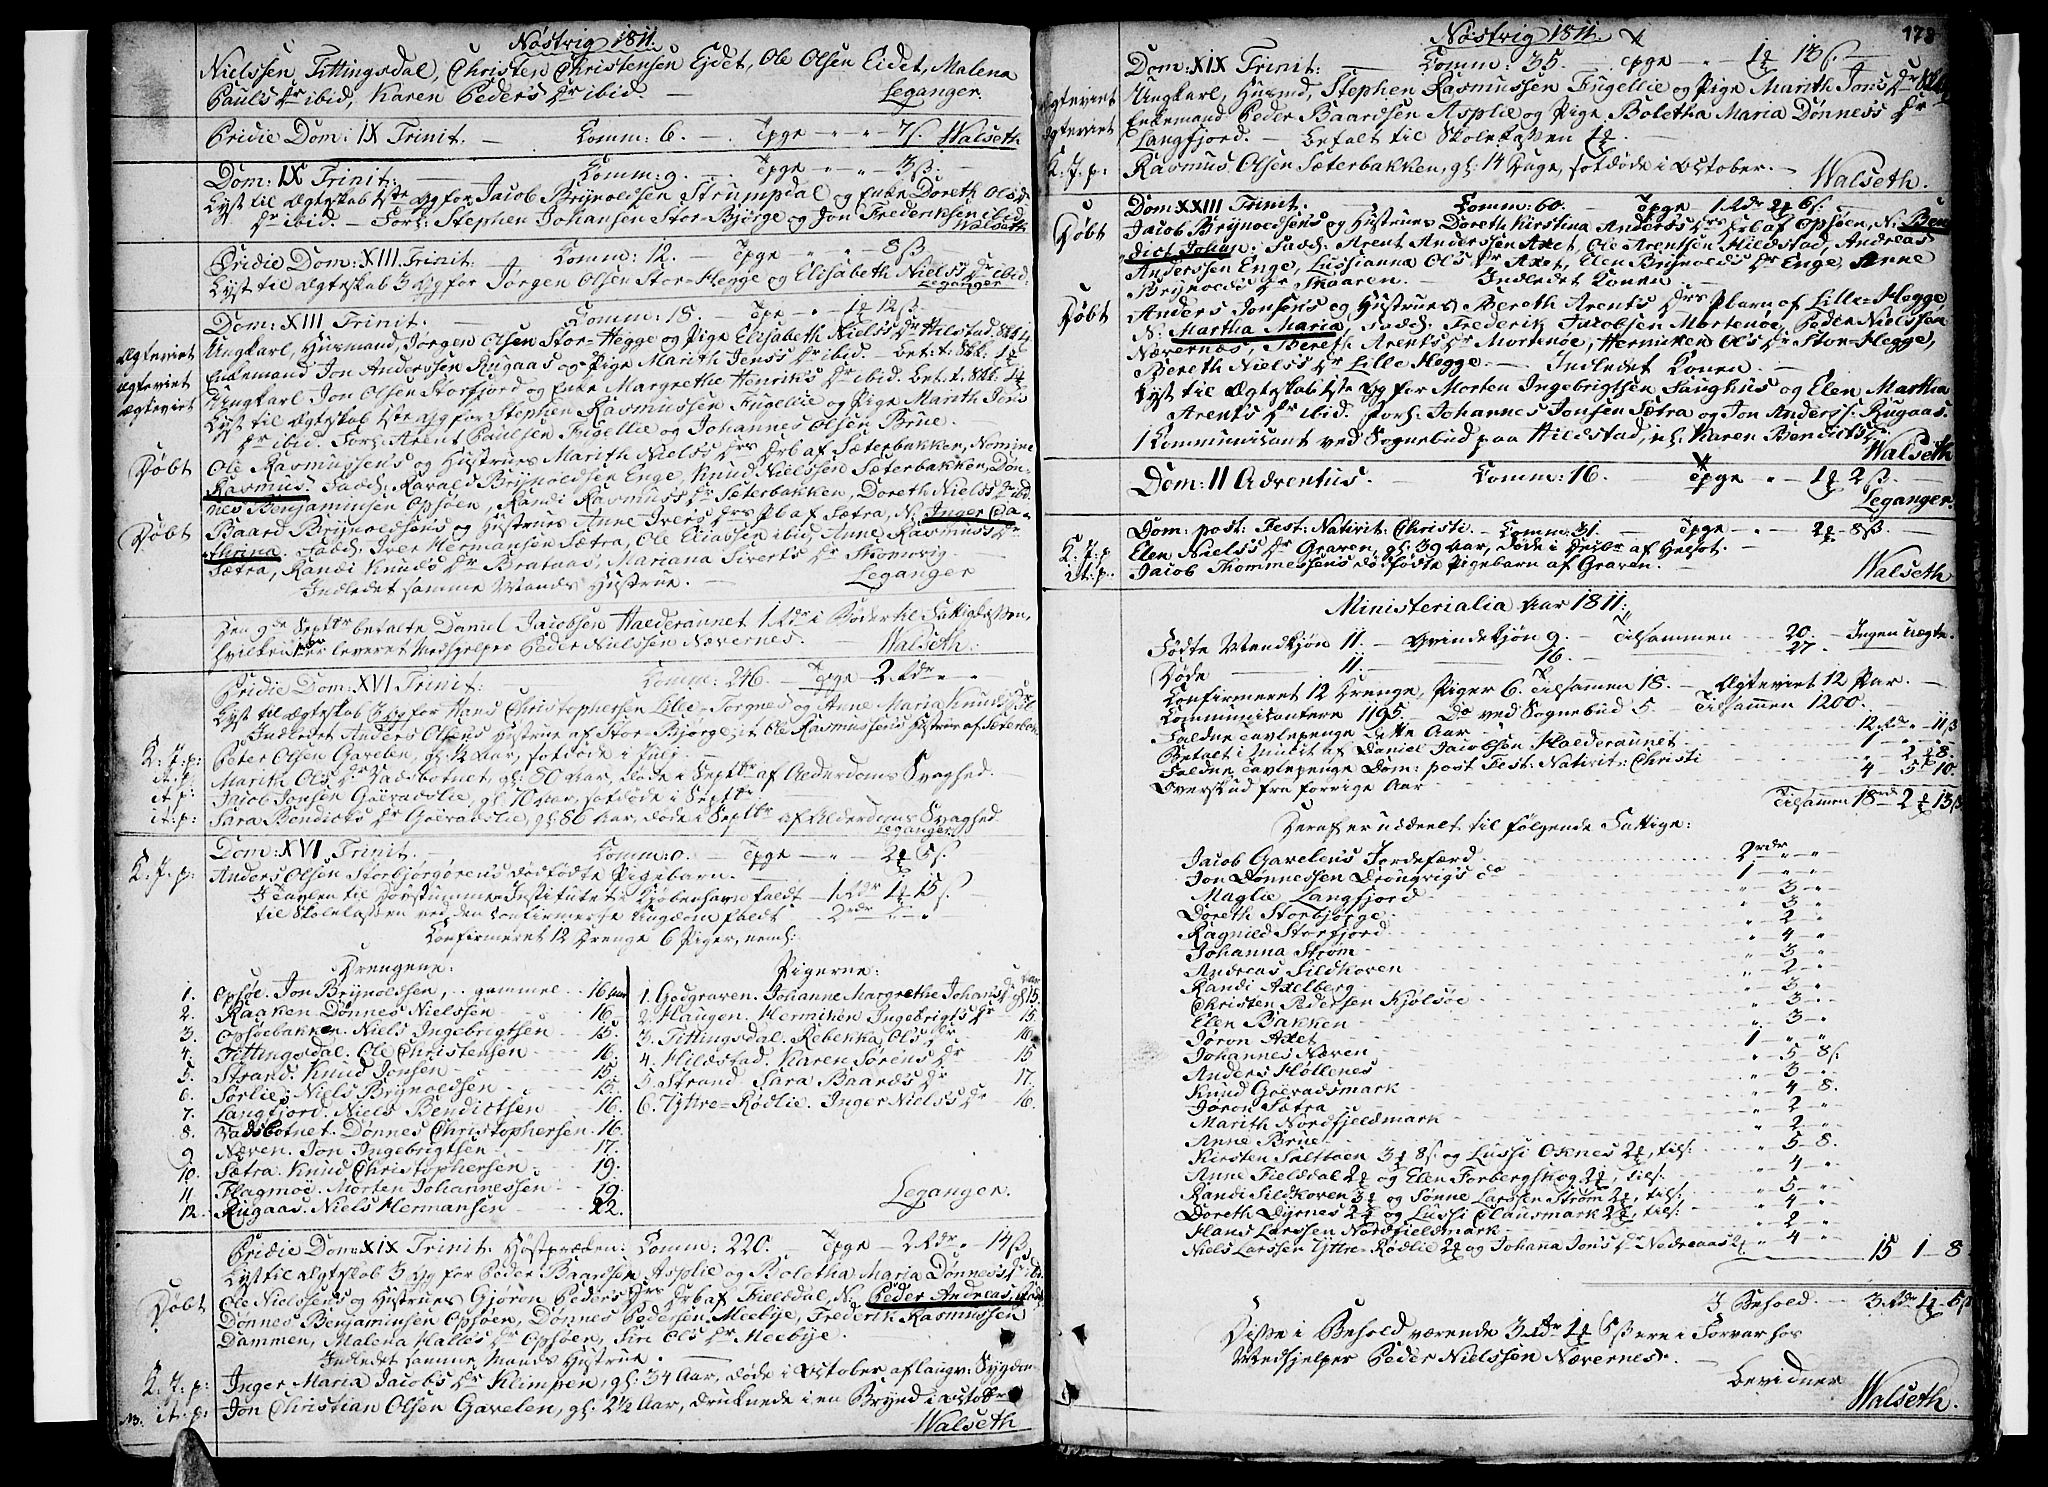 Nøstvig 1811.
Nielssen Fittingsdal, Christen Christensen Ejdet, Ole Olsen Eidet, Malena
Pauls Dr ibid, Karen Peders Dr ibid. Leganger.
Pridie Dom: IX Trinit. — Comm: 6. — Tpge „ „ — 7 ß. Walseth
Dom: IX Trinit: — Comm: 9. — Tpge „ „ 3 ß. —
Lyst til Ægteskab 1ste Gg for Jacob Brynoldsen Strumpdal og Enke Doreth Ols
Dr ibid. — Forl: Stephen Johansen Stor-Bjørge og Jon Frederiksen ibid.
Walseth
Pridie Dom: XIII Trinit: — Comm: 12. — Tpge „ „ 8 ß. —
Lyst til Ægteskab 3 Gg for Jørgen Olsen Stor-Hegge og Elisabeth Niels Dr ibid:
Leganger
Dom: XIII Trinit. — Comm: 18. — Tpge „ 12 ß.
Ægteviet Ungkarl, Husmand, Jørgen Olsen Stor-Hegge og Pige Elisabeth Niels Dr Hilstad.
ægteviet Enkemand Jon Anderssen Rugaas og Pige Marith Jens Dr ibid. —
ægteviet Ungkarl Jon Olsen Storfjord og Enke Margrethe Henrik's Dr ibid.
Lyst til Ægteskab 1ste Gg for Stephen Rasmussen Fugellie og Pige Marith Jons
Dr ibid. Forl: Arent Paulsen Fugellie og Johannes Olsen Brue.
Døbt Ole Rasmussens og Hustrues Marith Niels Drs Drb af Sæterbakken, Nomine
Rasmus. Fadd: Harald Brynoldsen Enge, Knud Nielssen Sæterbakken, Døn-
nes Benjaminsen Opsøen, Randi Rasmus Dr Sæterbakken, Doreth Niels Dr ibid.
Døbt Baard Brynoldsens og Hustrues Anne Ivers Drs Pb af Sætra, N. Inger Ca-
thrina. Fadd: Iver Hermansen Sætra, Ole Eliassen ibid, Anne Rasmus Dr
Sætra, Randi Knuds Dr Brataas, Mariana Siverts Dr Skomvig.
Indledet samme Mands Hustrue. — Leganger
Den 9de Septbr betalte Daniel Jacobsen Halderaunet 1 Rdr i Bøder til Fattigkassen,
hvilken er leveret Medhjelper Peder Nielssen Nævernes. — Walseth.
Pridie Dom: XVI Trinit: Comm: 246. — Tpge 2 Rdr „ „
Lyst til Ægteskab 3 Gg for Hans Christophersen Lille-Torgnes og Anne Maria Knuds Dr
Indledet Anders Olsens Hustrue af Stor-Bjørge, it Ole Rasmussens Hustrue af Sæterbak.
K. J. p: Peter Olsen Gavelen, gl: ¼ Aar, sotdøde i July. —
it. p: Marith Ols Dr Vadsbotnet, gl: 80 Aar, døde i Septbr af Alderdoms Svaghed. —
it. p: Jacob Jonsen Goeradslie, gl: 70 Aar, sotdøde i Septbr.
it. p: Sara Bendicts Dr Goeradslie, gl: 86 Aar, døde i Septbr af Alderdoms Svaghed.
Leganger
Dom: XVI Trinit. — Comm: 0. — Tpge — „ — 5 ß.
K. J. p: Anders Olsen Storbjørgørens dødfødte Pigebarn. —
I Tavlen til Døvstumme-Institutet i Kjøbenhavn faldt — 1 Rdr 15 ß.
til Skolekassen ved den confirmerte Ungdom faldt — 2 rdr „ „
Confirmeret 12 Drenge 6 Piger, neml:
Drengene:
1. Opsøe. Jon Brynoldsen, gammel 16 Aar
2. Raaken. Dønnes Nielssen 16.
3. Opsøebakken. Niels Ingebrigtsen 15.
4. Fittingsdal. Ole Christensen 16.
5. Strand. Knud Jonsen 15.
6. Sørlie. Niels Brynoldsen 15.
7. Langfjord. Niels Bendictsen 16.
8. Vadsbotnet. Dønnes Christophersen 16.
9. Næven. Jon Ingebrigtsen 17.
10. Sætra. Knud Christophersen 19.
11. Flagmoe. Morten Johannessen 19.
12. Rugaas. Niels Hermansen 22.
Pigerne:
1. Godgraven. Johanne Margrethe Johans Dr gl 15.
2. Haugen. Hermiken Ingebrigts Dr 15
3. Fittingsdal. Rebekka Ols Dr 16
4. Hildstad. Karen Sørens Dr 15
5. Strand. Sara Baards Dr 17.
6. Yttre-Rødlie. Inger Niels Dr 16.
Leganger.
Pridie Dom: XIX Trinit. Høstpræken: Comm: 220. Tpge — 2 Rdr „ 14 ß.
Lyst til Ægteskab 3 Gg for Peder Baardsen Asplie og Boletha Maria Dønnes Dr
Døbt Ole Nielssens og Hustrues Gjøron Peders Drs Drb af Fieldal, N: Peder Andreas,
Dønnes Benjaminsen Opsøen, Dønnes Pedersen Meebye, Frederik Rasmussen
Dammen, Malena Halles Dr Opsøen, Siri Ols Dr Meebye.
Indledet samme Mands Hustrue. —
K. J. p: Inger Maria Jacobs Dr Klimpen, gl: 34 Aar, døde i October af langv: Sygdom
NB. it. p: Jon Christian Olsen Gavelen, gl: 2½ Aar, druknede i en Brynd i Octobr
Walseth
Nøstvig 1811. 178
Dom: XIX Trinit: — Comm: 35. — Tpge „ 13 ß. —
Ægteviet Ungkarl, Husmd, Stephen Rasmussen Fugellie og Pige Marith Jons Dr
Ægteviet Enkemand Peder Baardsen Asplie og Pige Boletha Maria Dønnes Dr
Langfjord. — Betalt til Skolekassen
K. J. p: Rasmus Olsen Sæterbakken, gl: 14 Uge, sotdøde i October. — Walseth.
Dom XXIII Trinit. — Comm: 60. — Tpge — 1 Rdr 6 ß. —
Døbt Jacob Brynoldsens og Hustrues Doreth Kirstina Anders Drs Drb af Opsøen, N: Ben-
dict Johan. Fadd: Arent Anderssen Axet, Ole Arentsen Hildstad, Andreas
Anderssen Enge, Lussianna Ols Dr Axet, Elen Brynolds Dr Enge, Anne
Brynolds Dr Skaaren. — Indledet Konen. —
Døbt Anders Jonsens og Hustrues Bereth Arents Drs Pbarn af Lille-Hegge,
N: Martha Maria, Fadd: Frederik Jacobsen Mortenøe, Peder Nielssen
Nævernæs, Bereth Arents Dr Mortenøe, Hermiken Ols Dr Stor-Hegge,
Bereth Niels Dr Lille Hegge. — Indledet Konen. —
Lyst til Ægteskab 1ste Gg for Morten Ingebrigtsen Langhus og Elen Martha
Arents Dr ibid. Forl: Johannes Jonsen Sætra og Jon Anders: Rugaas.
1 Kommunicant ved Sognebud paa Hildstad, nl: Karen Bendicts Dr
Walseth
Dom: II Adventus. — Comm: 16. — Tpge „ 2 ß. —
Leganger.
Dom: post: Fest: Nativit: Christi. — Comm: 31. — Tpge — „ 8 ß. —
K. J. p Elen Niels Dr Graven, gl: 39 Aar, døde i Decbr af Helsot. —
it. p. Jacob Thommessens dødfødte Pigebarn af Graven. — Walseth
Ministerialia Aar 1811:
Fødte Mandkjøn 11. — Qvindekjøn 9. — Tilsammen 20. — Ingen uægte.
Døde 11. — 16. — 27.
Confirmeret 12 Drenge, Piger 6. Tilsammen 18. — Ægteviet 12 Par. —
Communicantere 1195. — Do ved Sognebud 5 — Tilsammen 1200.
Faldne Tavlepenge dette Aar 12 Rdr „ 11 ß
Betalt i Mulct af Daniel Jacobsen Halderaunet 1 — „ — „
Faldne Tavlepenge Dom: post Fest: Nativit: Christi „ 2 8.
Overskud fra forrige Aar 4 — 5 10.
Tilsammen 18 rdr 2 13 ß
Deraf er uddeelt til følgende Fattige:
Jacob Gavelens Jordefærd 2 rdr „ „
Jon Dønnessen Drongvigs do 1 „ „
Maglie Langfjord „ 3 „
Doreth Storbjørge „ 3 „
Ragnild Storfjord „ 2 „
Johanna Strøm „ 4 „
Andreas Sildhoven „ 3 „
Randi Axelberg „ 2 „
Christen Pedersen Kjølsøe „ 3 „
Elen Bakken „ 3 „
Jøron Axet „ 3 „
Johannes Næven 1 „ „
Anders Høllenes „ 5 8 ß.
Knud Goeradsmark „ 3 „
Jøron Sætra „ 4 8.
Marith Nordfjeldmark „ 2 „
Anne Brue „ 2 „
Kirsten Salttoen 3 8 ß. og Lussi Oxnes 2, tils: „ 5 8.
Anne Fieldal 2 og Elen Forbergskog 2, tils: „ 4 „
Randi Sildhoven 3 og Sønne Larssen Strøm 2, tils: „ 5 „
Doreth Dyrnes 2 og Lussi Clausmark 2, tils: „ 4 „
Hans Larssen Nordfieldmark „ 2 „
Niels Larssen Yttre-Rødlie 2 og Johanna Jons Dr Nedreaas 2 „ 4 „ 15 1 — 8
I Behold. — 3 Rdr 1 5 ß
Disse i Behold værende 3 Rdr 1 5 ß ere i Forvar hos
Medhjelper Peder Nielssen Nævernes. —
Bevidner
Walseth.